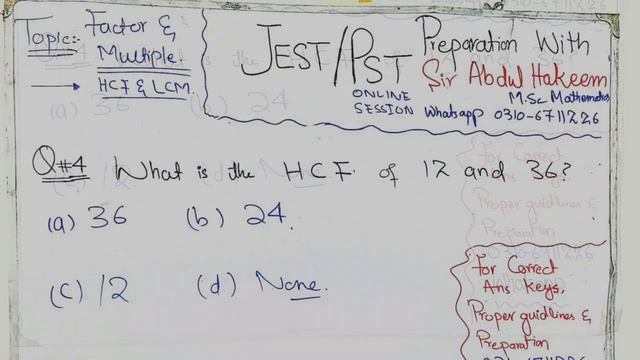 Topic:- Factor &
Multiple.
→ HCF & LCM.
JEST/PST
ONLINE
SESSION
Preparation With
Sir Abdul Hakeem
M.Sc Mathematics
Whatsapp 0310-6711226
Q#4 What is the HCF. of 12 and 36?
(a) 36 (b) 24.
(c) 12 (d) None.
For Correct
Ans Keys.
Proper guidlines &
Preparation